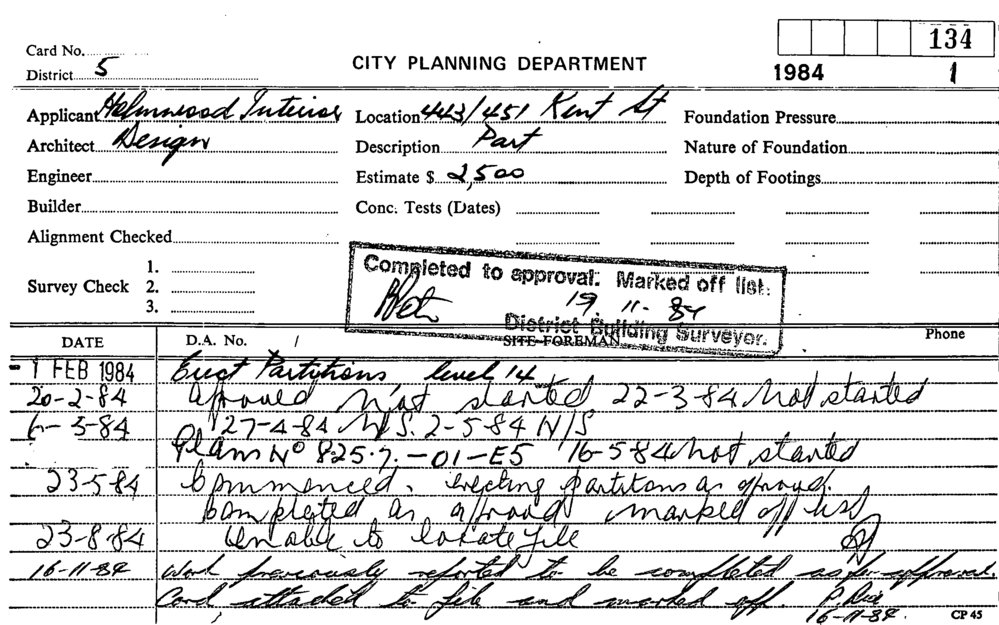 134
Card No.
District 5
CITY PLANNING DEPARTMENT
1984 1
Applicant Helmwood Interior Location 443/451 Kent St Foundation Pressure
Architect Design Description Part Nature of Foundation
Engineer Estimate $ 2,500 Depth of Footings
Builder Conc. Tests (Dates)
Alignment Checked
Survey Check 1.
2.
3.
Completed to approval. Marked off list.
19. 11- 84
District Building Surveyor.
DATE D.A. No. / SITE FOREMAN Phone
- 1 FEB 1984 Erect Partitions, level 14
20-2-84 Aproved Not started 22-3-84 Not started
6-3-84 27-4-84 N/S. 2-5-84 N/S
Plans No 825.7.-01-E5 16-5-84 Not started
23-5-84 Commenced. erecting partitons as aproved.
Completed as aproved marked off list
23-8-84 Unable to locate file
16-11-84 Work previously reported to be completed as per approval.
Card attached to file and marked off. P.
16-11-84. CP 45